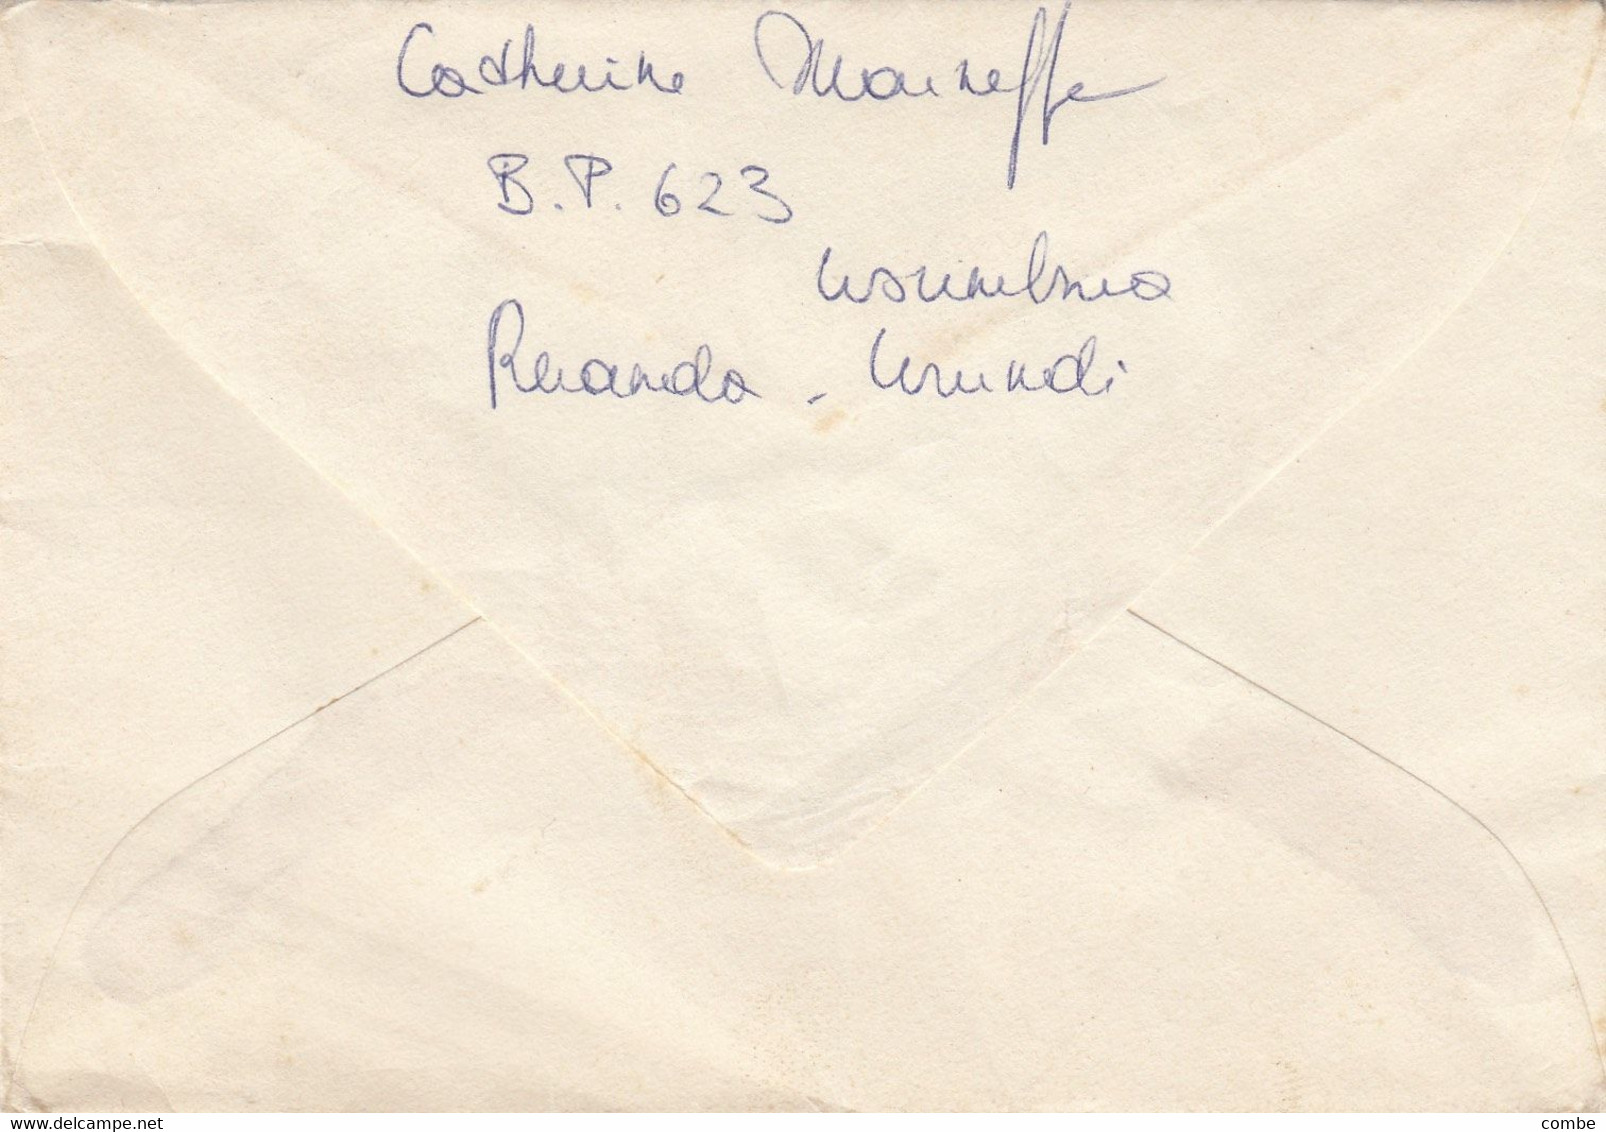 Catherine Marneffe
B.P. 623
Usumbura
Ruanda - Urundi
delcampe.net
combe